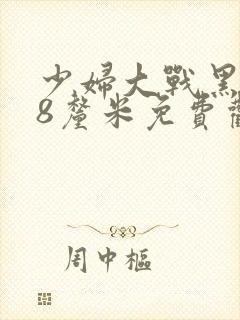 少婦大戰黑
8釐米免費觀
周中樞